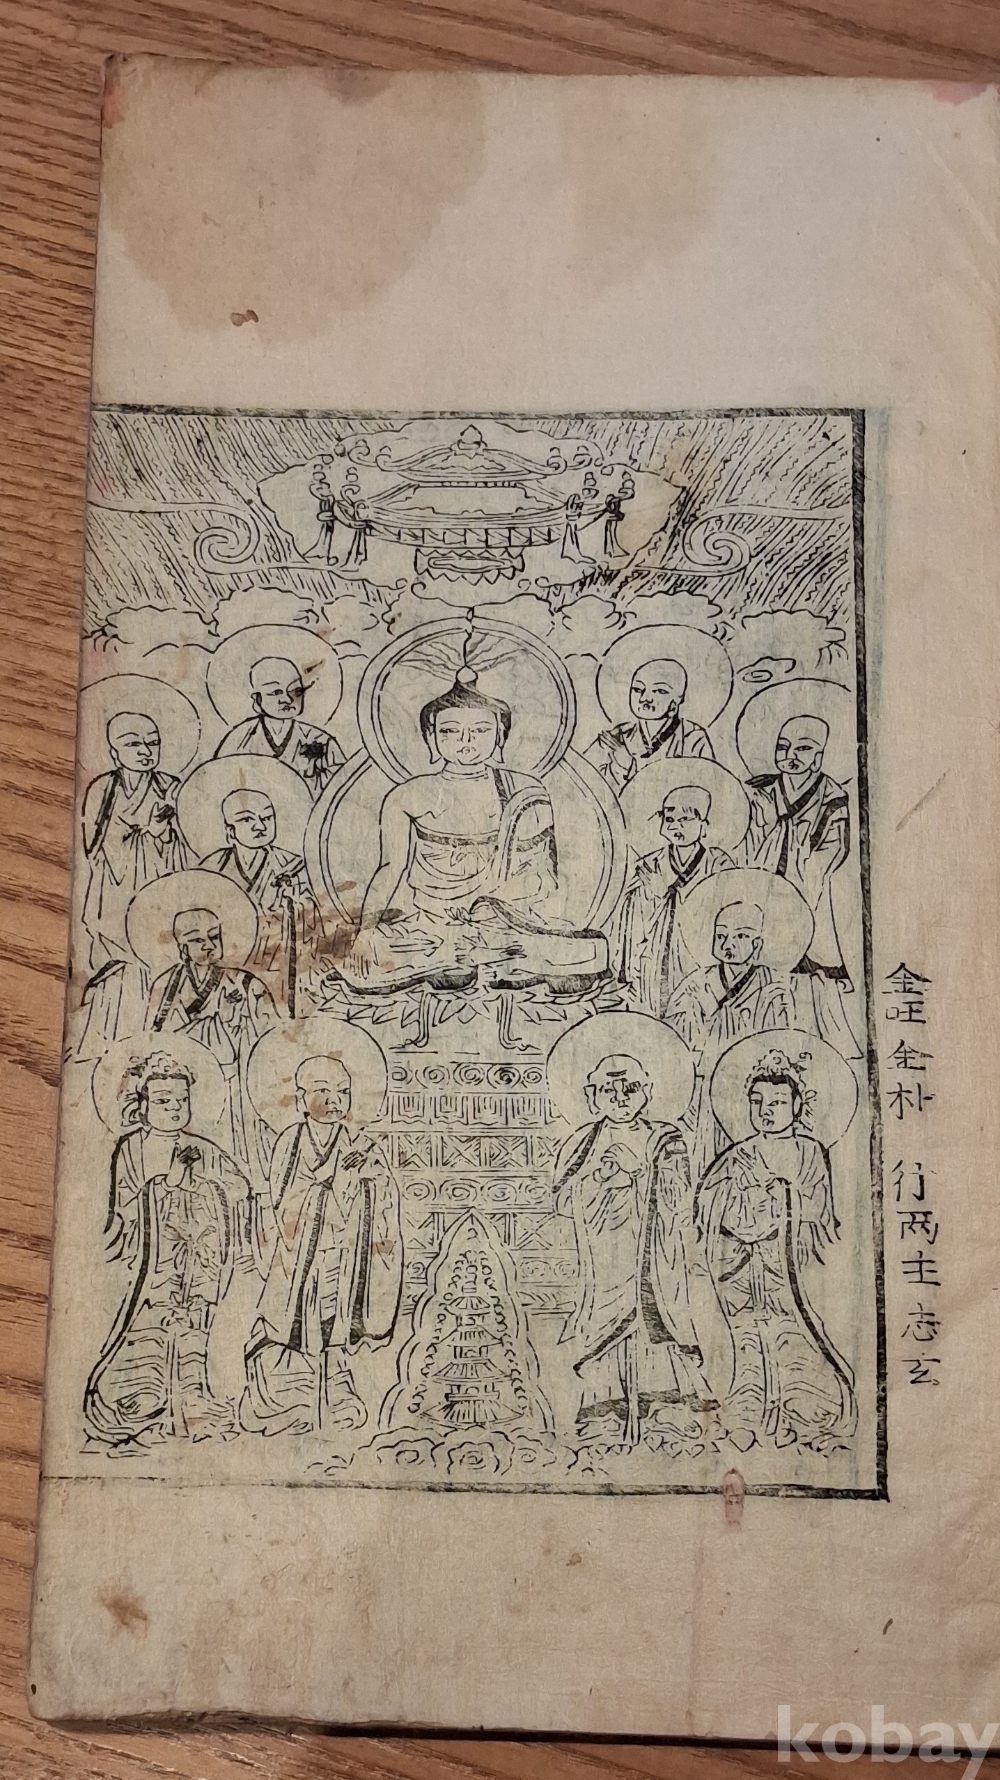 金旺金朴 行两主 志玄
kobay